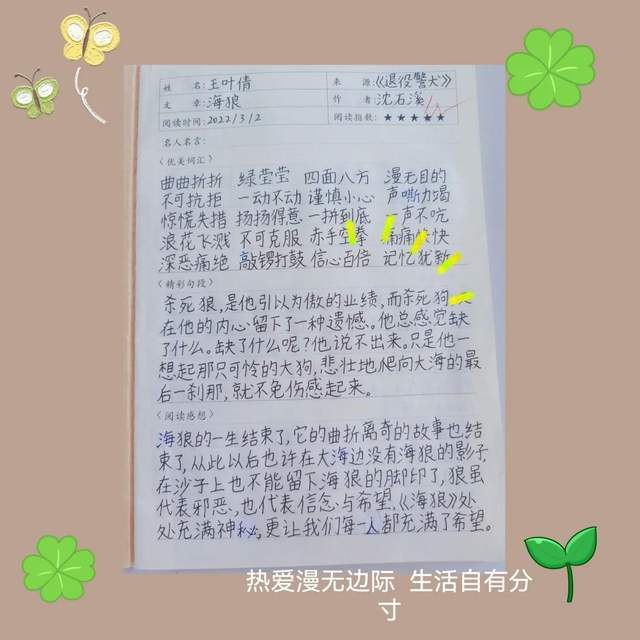 姓 名:王叶倩 来 源:《退役警犬》
文 章:海狼 作 者:沈石溪
阅读时间:2022/3/2 阅读指数:★★★★★
名人名言:
〈优美词汇〉
曲曲折折 绿莹莹 四面八方 漫无目的
不可抗拒 一动不动 谨慎小心 声嘶力渴
惊慌失措 扬扬得意 一拼到底 声不吭
浪花飞溅 不可克服 赤手空拳 痛痛快快
深恶痛绝 敲锣打鼓 信心百倍 记忆犹新
〈精彩句段〉
杀死狼,是他引以为傲的业绩,而杀死狗
在他的内心留下了一种遗憾。他总感觉缺
了什么。缺了什么呢?他说不出来。只是他一
想起那只可怜的大狗,悲壮地爬向大海的最
后一刹那,就不免伤感起来。
〈阅读感想〉
海狼的一生结束了,它的曲折离奇的故事也结
束了,从此以后也许在大海边没有海狼的影子
在沙子上也不能留下海狼的脚印了,狼虽
代表邪恶,也代表信念与希望,《海狼》处
处充满神秘,更让我们每一人都充满了希望。
热爱漫无边际 生活自有分
寸